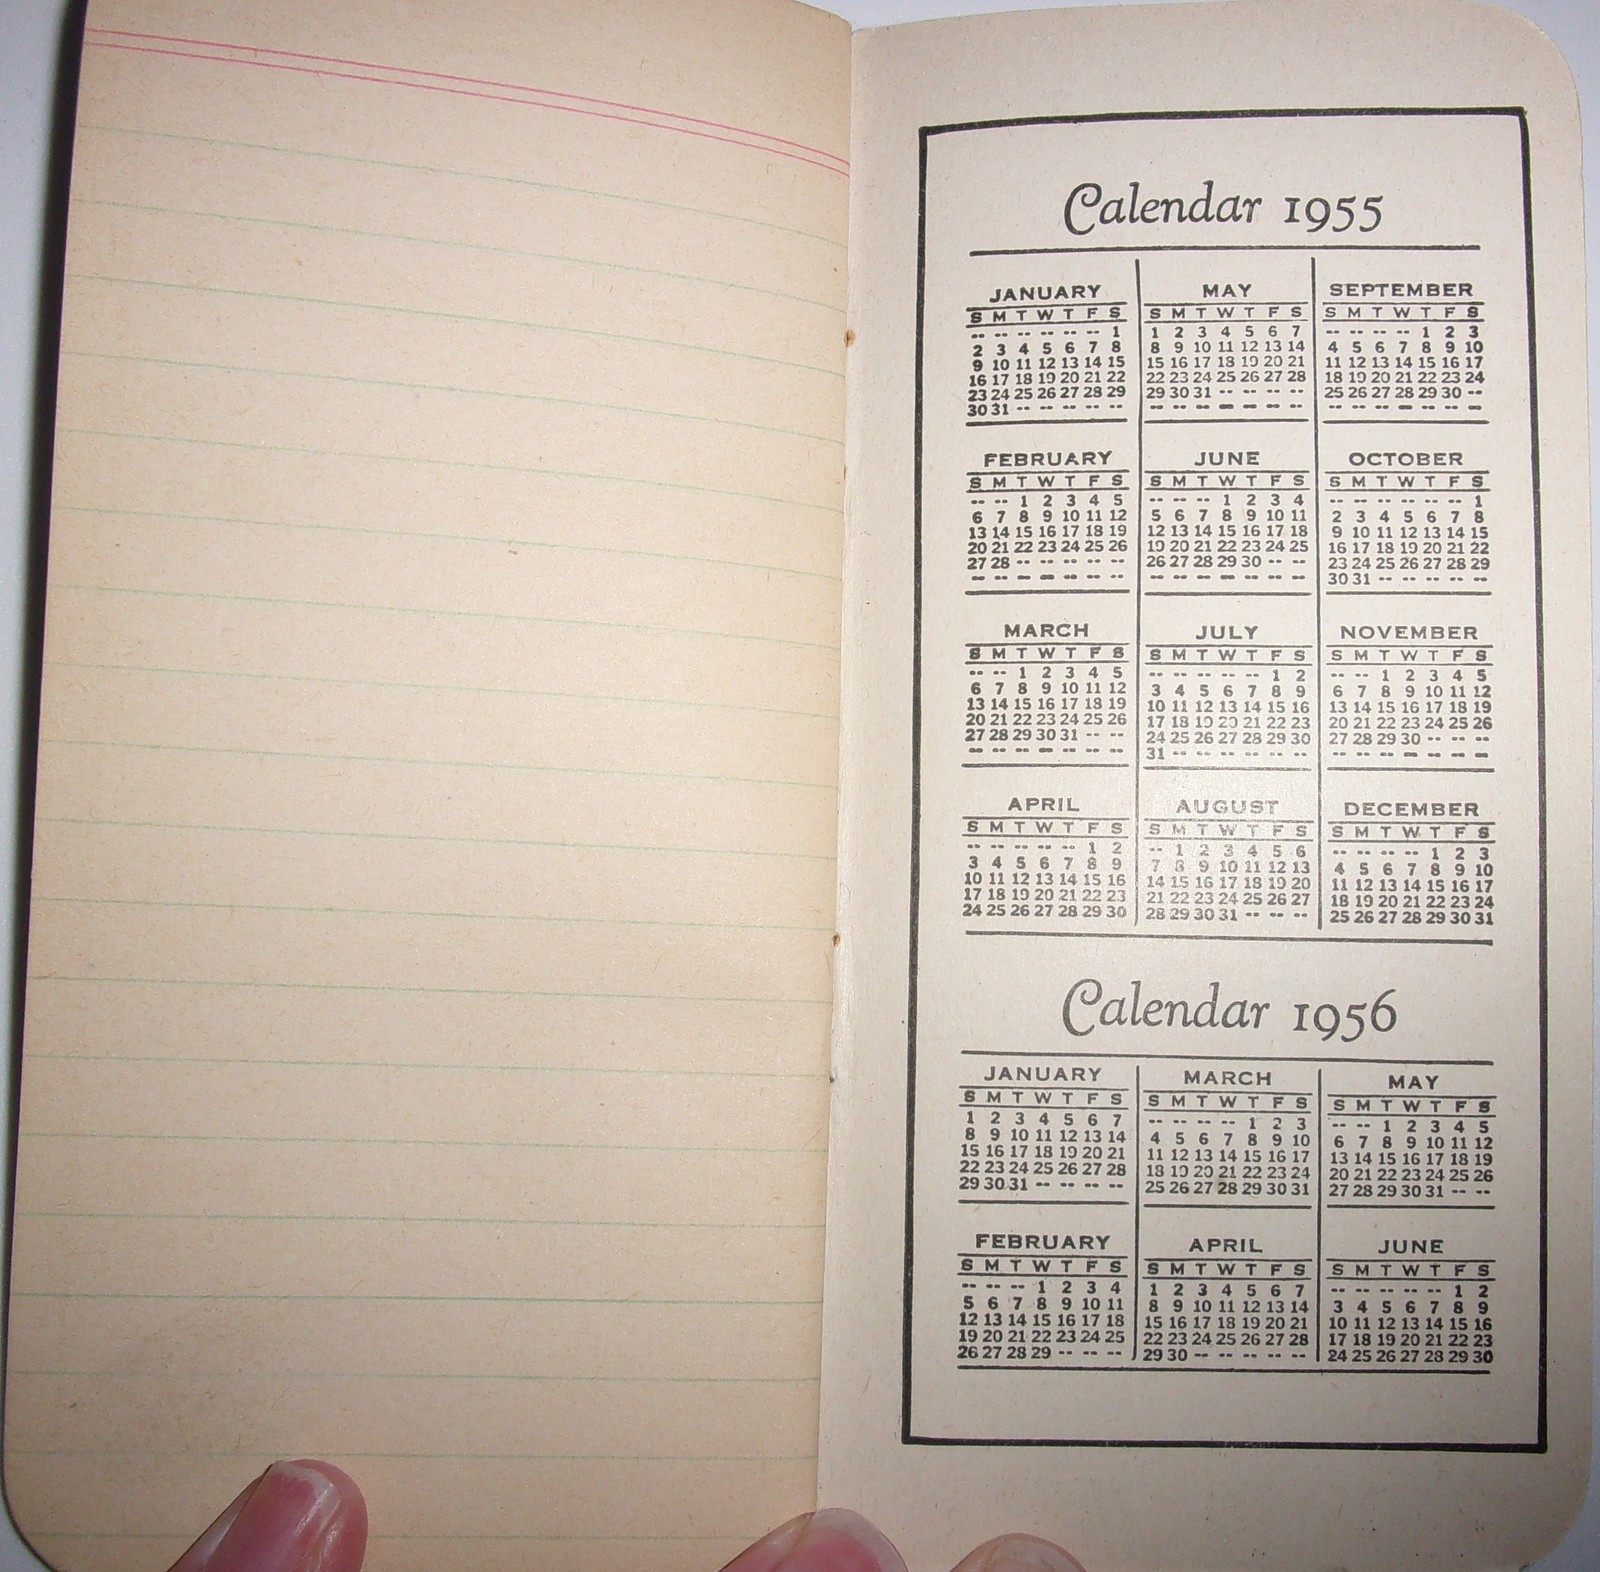 Calendar 1955
JANUARY
S M T W T F S
-- -- -- -- -- -- 1
2 3 4 5 6 7 8
9 10 11 12 13 14 15
16 17 18 19 20 21 22
23 24 25 26 27 28 29
30 31 -- -- -- -- --
FEBRUARY
S M T W T F S
-- -- 1 2 3 4 5
6 7 8 9 10 11 12
13 14 15 16 17 18 19
20 21 22 23 24 25 26
27 28 -- -- -- -- --
-- -- -- -- -- -- --
MARCH
S M T W T F S
-- -- 1 2 3 4 5
6 7 8 9 10 11 12
13 14 15 16 17 18 19
20 21 22 23 24 25 26
27 28 29 30 31 -- --
-- -- -- -- -- -- --
APRIL
S M T W T F S
-- -- -- -- -- 1 2
3 4 5 6 7 8 9
10 11 12 13 14 15 16
17 18 19 20 21 22 23
24 25 26 27 28 29 30
MAY
S M T W T F S
1 2 3 4 5 6 7
8 9 10 11 12 13 14
15 16 17 18 19 20 21
22 23 24 25 26 27 28
29 30 31 -- -- -- --
-- -- -- -- -- -- --
JUNE
S M T W T F S
-- -- -- 1 2 3 4
5 6 7 8 9 10 11
12 13 14 15 16 17 18
19 20 21 22 23 24 25
26 27 28 29 30 -- --
-- -- -- -- -- -- --
JULY
S M T W T F S
-- -- -- -- -- 1 2
3 4 5 6 7 8 9
10 11 12 13 14 15 16
17 18 19 20 21 22 23
24 25 26 27 28 29 30
31 -- -- -- -- -- --
AUGUST
S M T W T F S
-- 1 2 3 4 5 6
7 8 9 10 11 12 13
14 15 16 17 18 19 20
21 22 23 24 25 26 27
28 29 30 31 -- -- --
SEPTEMBER
S M T W T F S
-- -- -- -- 1 2 3
4 5 6 7 8 9 10
11 12 13 14 15 16 17
18 19 20 21 22 23 24
25 26 27 28 29 30 --
-- -- -- -- -- -- --
OCTOBER
S M T W T F S
-- -- -- -- -- -- 1
2 3 4 5 6 7 8
9 10 11 12 13 14 15
16 17 18 19 20 21 22
23 24 25 26 27 28 29
30 31 -- -- -- -- --
NOVEMBER
S M T W T F S
-- -- 1 2 3 4 5
6 7 8 9 10 11 12
13 14 15 16 17 18 19
20 21 22 23 24 25 26
27 28 29 30 -- -- --
-- -- -- -- -- -- --
DECEMBER
S M T W T F S
-- -- -- -- 1 2 3
4 5 6 7 8 9 10
11 12 13 14 15 16 17
18 19 20 21 22 23 24
25 26 27 28 29 30 31
Calendar 1956
JANUARY
S M T W T F S
1 2 3 4 5 6 7
8 9 10 11 12 13 14
15 16 17 18 19 20 21
22 23 24 25 26 27 28
29 30 31 -- -- -- --
FEBRUARY
S M T W T F S
-- -- -- 1 2 3 4
5 6 7 8 9 10 11
12 13 14 15 16 17 18
19 20 21 22 23 24 25
26 27 28 29 -- -- --
MARCH
S M T W T F S
-- -- -- -- 1 2 3
4 5 6 7 8 9 10
11 12 13 14 15 16 17
18 19 20 21 22 23 24
25 26 27 28 29 30 31
APRIL
S M T W T F S
1 2 3 4 5 6 7
8 9 10 11 12 13 14
15 16 17 18 19 20 21
22 23 24 25 26 27 28
29 30 -- -- -- -- --
MAY
S M T W T F S
-- -- 1 2 3 4 5
6 7 8 9 10 11 12
13 14 15 16 17 18 19
20 21 22 23 24 25 26
27 28 29 30 31 -- --
JUNE
S M T W T F S
-- -- -- -- -- 1 2
3 4 5 6 7 8 9
10 11 12 13 14 15 16
17 18 19 20 21 22 23
24 25 26 27 28 29 30